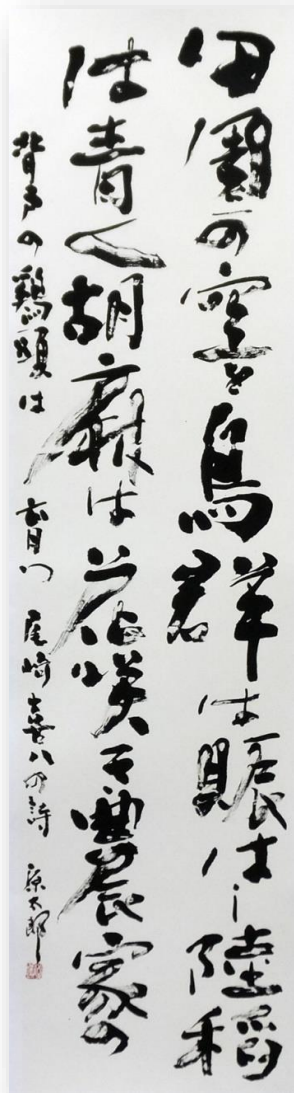 田園の空を鳥群は賑はし陸稲
は青く胡麻は花咲き農家の
背戸の鶏頭は 尾崎喜八の詩